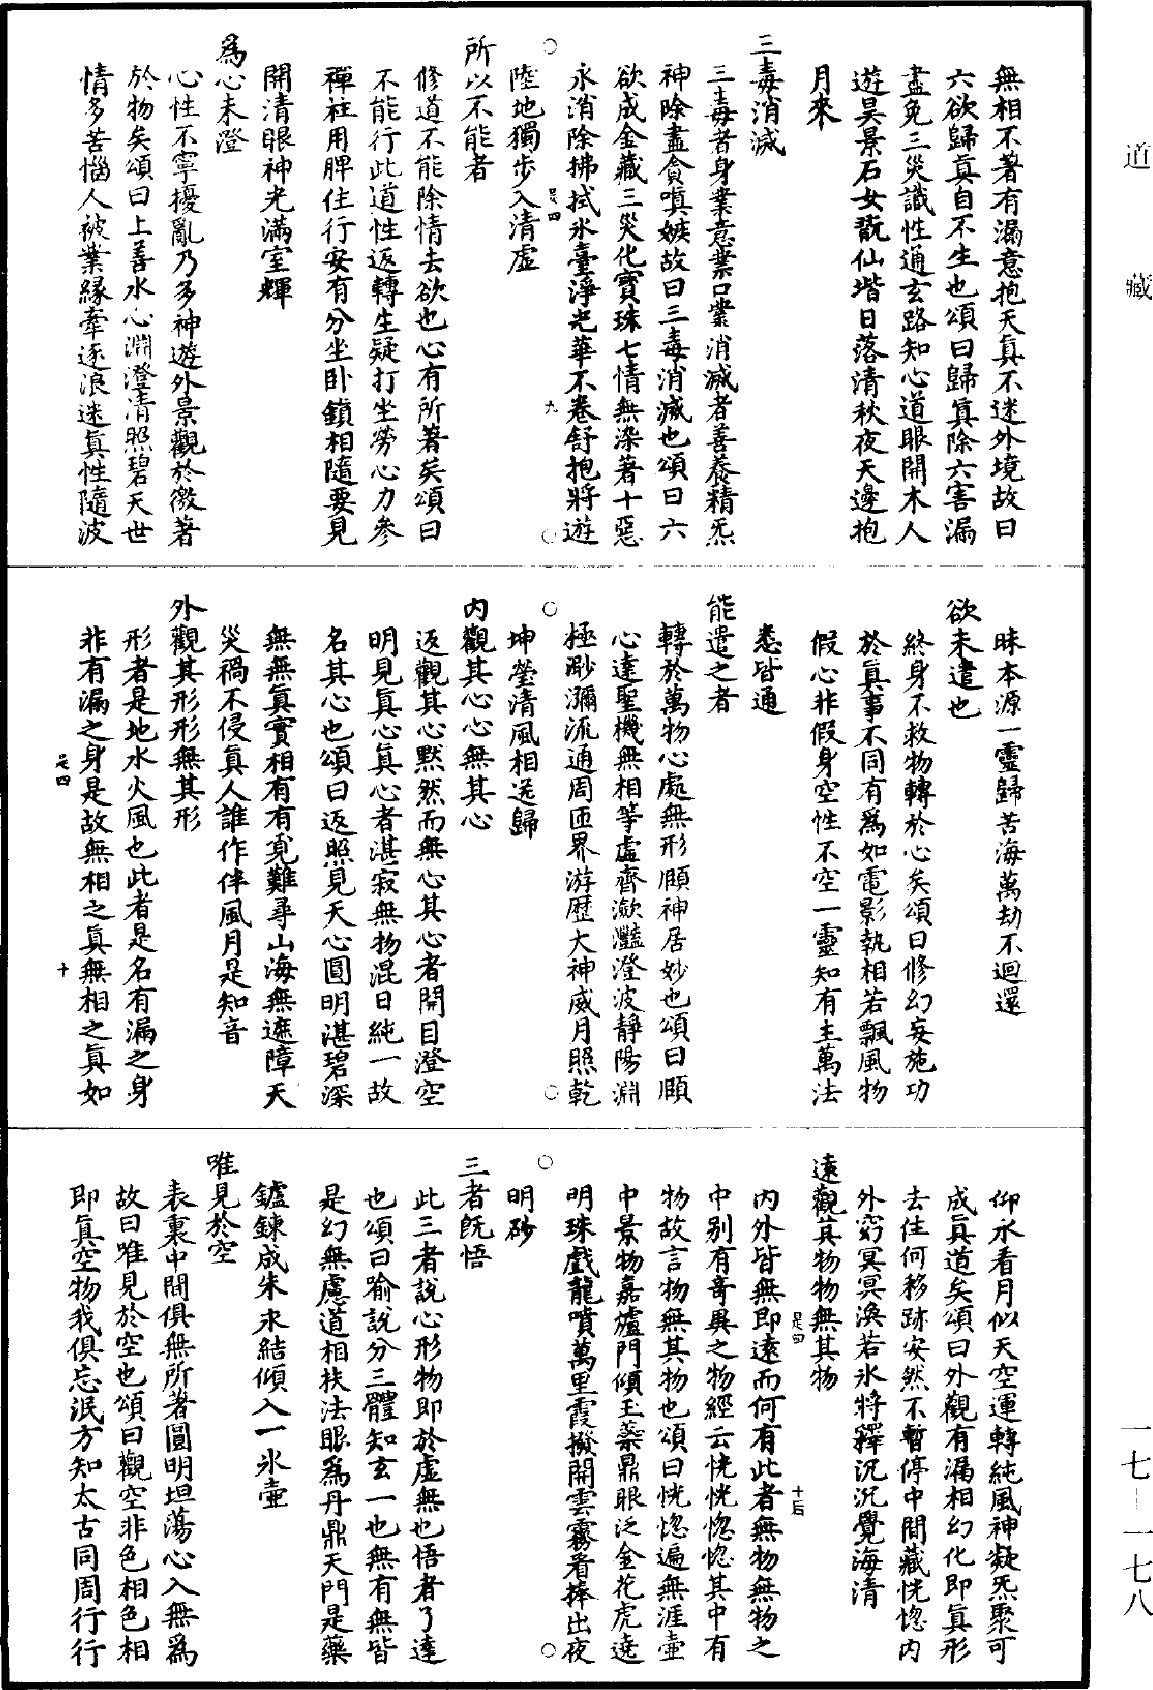 道藏
一七—一七八
無相不著有漏意抱天真不迷外境故曰
六欲歸真自不生也頌曰歸真除六害漏
盡免三災識性通玄路知心道眼開木人
遊昊景石女翫仙堦日落清秋夜天邊抱
月來
三毒消滅
三毒者身業意業口業消滅者善養精炁
神除盡貪嗔嫉故曰三毒消滅也頌曰六
欲成金藏三災化寶珠七情無染著十惡
永消除拂拭氷臺淨光華不卷舒抱將遊
是四
九
陸地獨步入清虛
所以不能者
修道不能除情去欲也心有所著矣頌曰
不能行此道性返轉生疑打坐勞心力參
禪枉用脾住行安有分坐卧鎖相隨要見
開清眼神光滿室輝
為心未澄
心性不寧擾亂乃多神遊外景觀於微著
於物矣頌曰上善水心淵澄清照碧天世
情多苦惱人被業緣牽逐浪迷真性隨波
昧本源一靈歸苦海萬劫不迴還
欲未遣也
終身不救物轉於心矣頌曰修幻妄施功
於真事不同有為如電影執相若飄風物
假心非假身空性不空一靈知有主萬法
悉皆通
能遣之者
轉於萬物心處無形頤神居妙也頌曰頤
心達聖機無相等虛齊瀲灩澄波靜陽淵
極渺瀰流通周匝界游歷大神威月照乾
坤瑩清風相送歸
內觀其心心無其心
返觀其心黙然而無心其心者開目澄空
明見真心真心者湛寂無物混日純一故
名其心也頌曰返照見天心圓明湛碧深
無無真實相有有覓難尋山海無遮障天
災禍不侵真人誰作伴風月是知音
外觀其形形無其形
形者是地水火風也此者是名有漏之身
非有漏之身是故無相之真無相之真如
是四
十
仰水看月似天空運轉純風神凝炁聚可
成真道矣頌曰外觀有漏相幻化即真形
去住何移跡安然不暫停中間藏恍惚內
外窮冥冥渙若氷將釋沉沉覺海清
遠觀其物物無其物
內外皆無即遠而何有此者無物無物之
是四
十一
中別有奇異之物經云恍恍惚惚其中有
物故言物無其物也頌曰恍惚遍無涯壷
中景物嘉爐門傾玉蘂鼎眼泛金花虎遶
明珠戲龍噴萬里霞撥開雲霧看捧出夜
明砂
三者旣悟
此三者說心形物即於虛無也悟者了達
也頌曰喻說分三體知玄一也無有無皆
是幻無慮道相扶法眼為丹鼎天門是藥
鑪鍊成朱汞結傾入一氷壷
唯見於空
表裏中間俱無所著圓明坦蕩心入無為
故曰唯見於空也頌曰觀空非色相色相
即真空物我俱忘泯方知太古同周行行